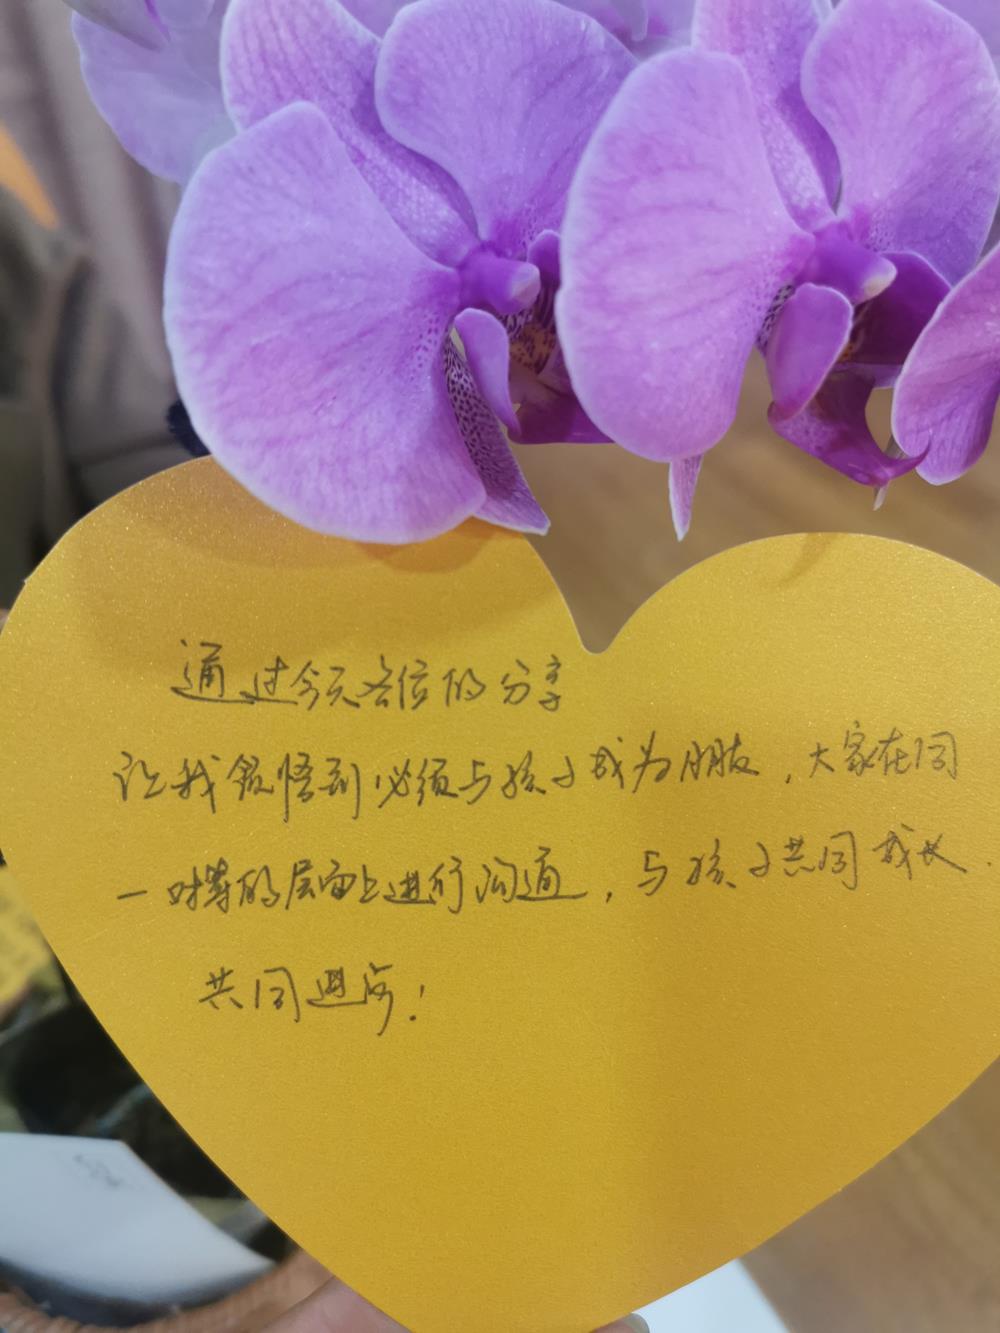 通过今天各位的分享
让我领悟到必须与孩子成为朋友,大家在同
一对等的层面上进行沟通,与孩子共同成长.
共同进步!